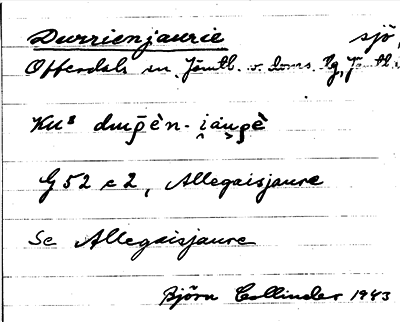 Durrienjaurie sjö,
Offerdals sn Jämtl. o. loms. lg, Jä tl.
Kus durrpèn-jäurpè
G52 c2, Allegaisjaure
Se Allegaisjaure
Björn Collinder 1943